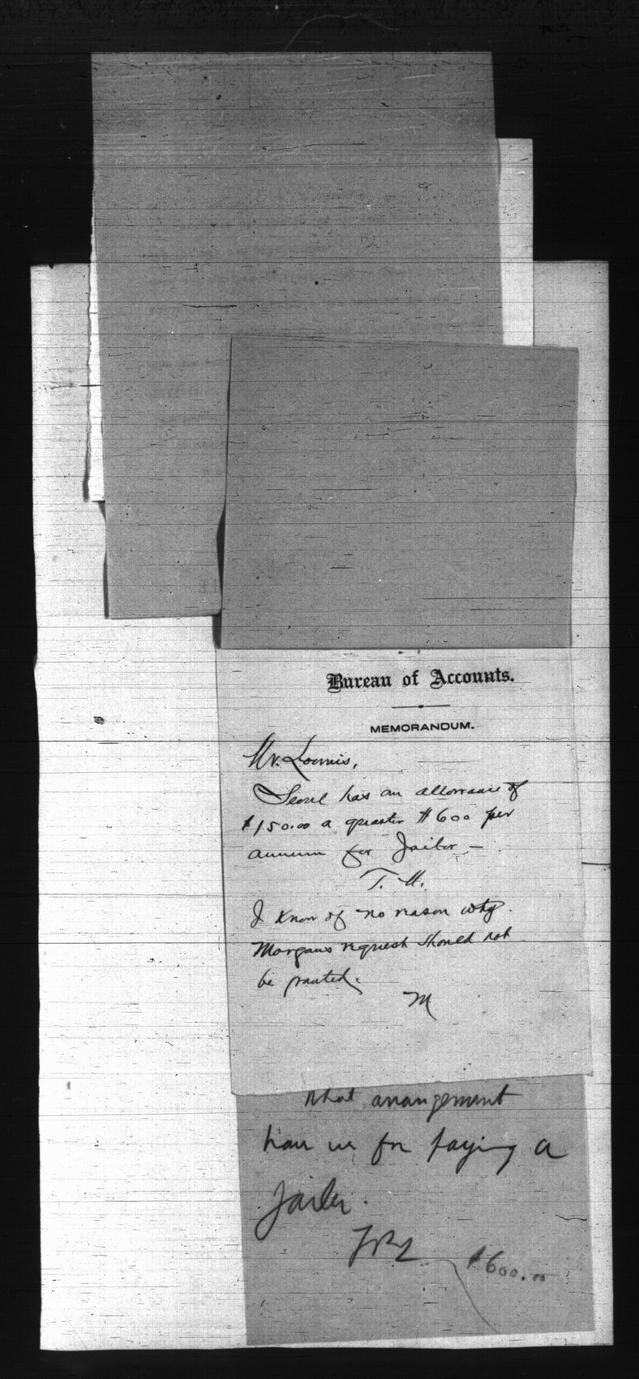 Bureau of Accounts.
MEMORANDUM.
Mr. Loomis,
Seoul has an allowance of
$150.00 a quarter $600 per
annum for Jailor —
T. M.
I know of no reason why
Morgan's request should not
be granted.
M
What arrangement
have we for paying a
Jailer.
FBL
$600.00